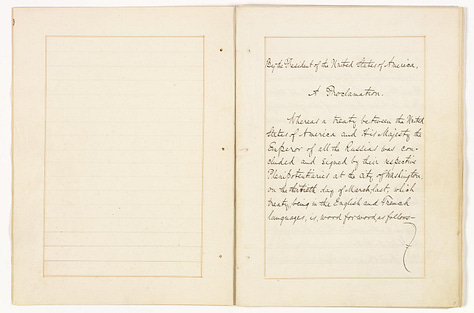 By the President of the United States of America.
A Proclamation.
Whereas a treaty between the United
States of America and His Majesty the
Emperor of all the Russias was con-
cluded and signed by their respective
Plenipotentiaries at the city of Washington,
on the thirtieth day of March, last, which
treaty, being in the English and French
languages, is, word for word as follows—